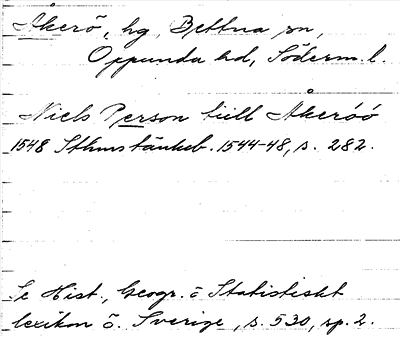 Åkerö, hg, Bettna sn,
Oppunda hd, Söderm. l.
Niels Person till Åkeróó
1548 Sthms tänkeb. 1544-48, s. 282.
Se Hist., Geogr. o Statistiskt
lexikon ö. Sverige, s. 530, sp. 2.